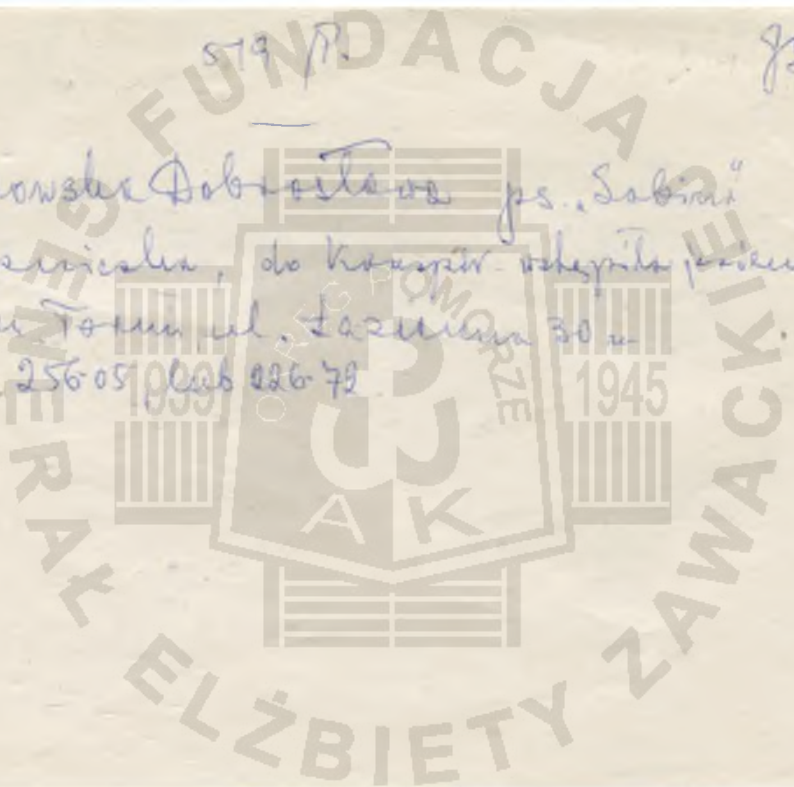 519 T.
owska Dobrosława ps. "Sabina"
do Konspir. wstąpiła
Toruń ul. 30
256-05 lub 226-72
FUNDACJA
GENERAŁ ELŻBIETY ZAWACKIEJ
OKRĘG POMORZE
1939 1945
AK